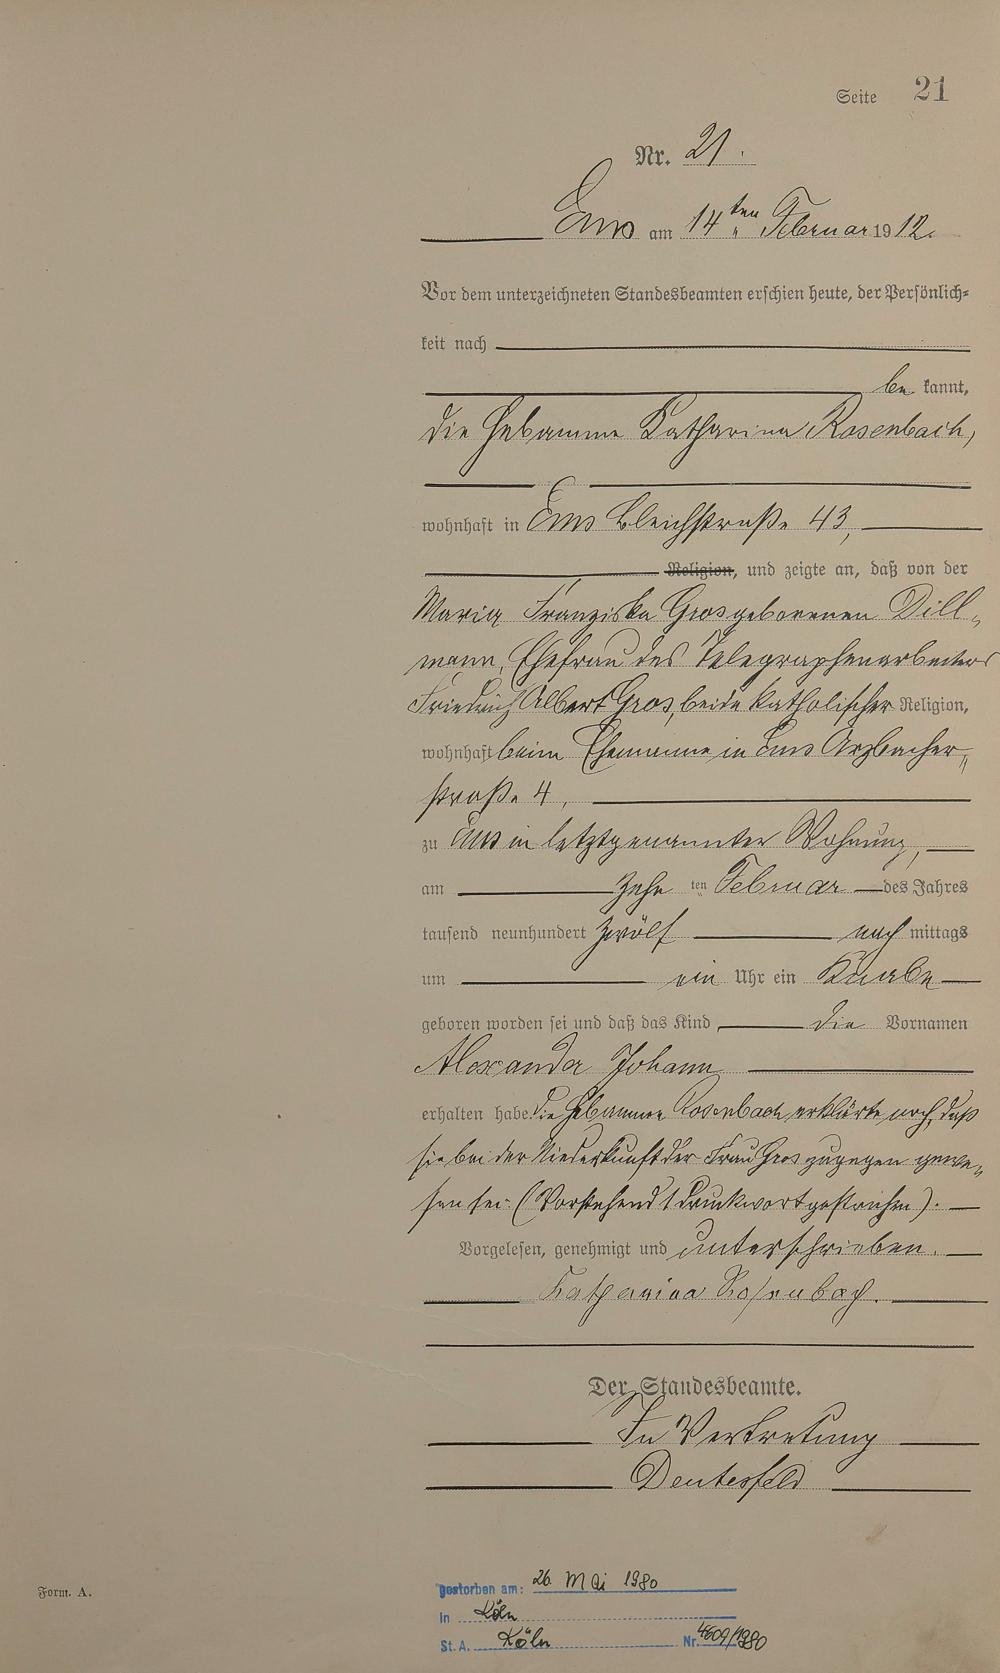 Seite 21
Nr. 21.
Ems am 14ten Februar 1912.
Vor dem unterzeichneten Standesbeamten erschien heute, der Persönlich=
keit nach
be kannt,
die Hebamme Katharina Rosenbach,
wohnhaft in Ems Bleichstraße 43,
Religion, und zeigte an, daß von der
Maria Franziska Gros geborenen Dill„
mann, Ehefrau des Telegraphenarbeiters
Friedrich Albert Gros, beide katholischer Religion,
wohnhaft beim Ehemanne in Ems Arzbacher„
straße 4,
zu Ems in letztgenannter Wohnung,
am zehn ten Februar des Jahres
tausend neunhundert zwölf nach mittags
um ein Uhr ein Knabe
geboren worden sei und daß das Kind die Vornamen
Alexander Johann
erhalten habe. Die Hebamme Rosenbach erklärte noch, daß
sie bei der Niederkunft der Frau Gros zugegen gewe„
sen sei. (Vorstehend 1 Druckwort gestrichen).
Vorgelesen, genehmigt und unterschrieben.
Katharina Rosenbach.
Der Standesbeamte.
In Vertretung
Deutesfeld
Form. A.
gestorben am: 26. Mai 1980
in Köln
St. A. Köln Nr. 4609/1980